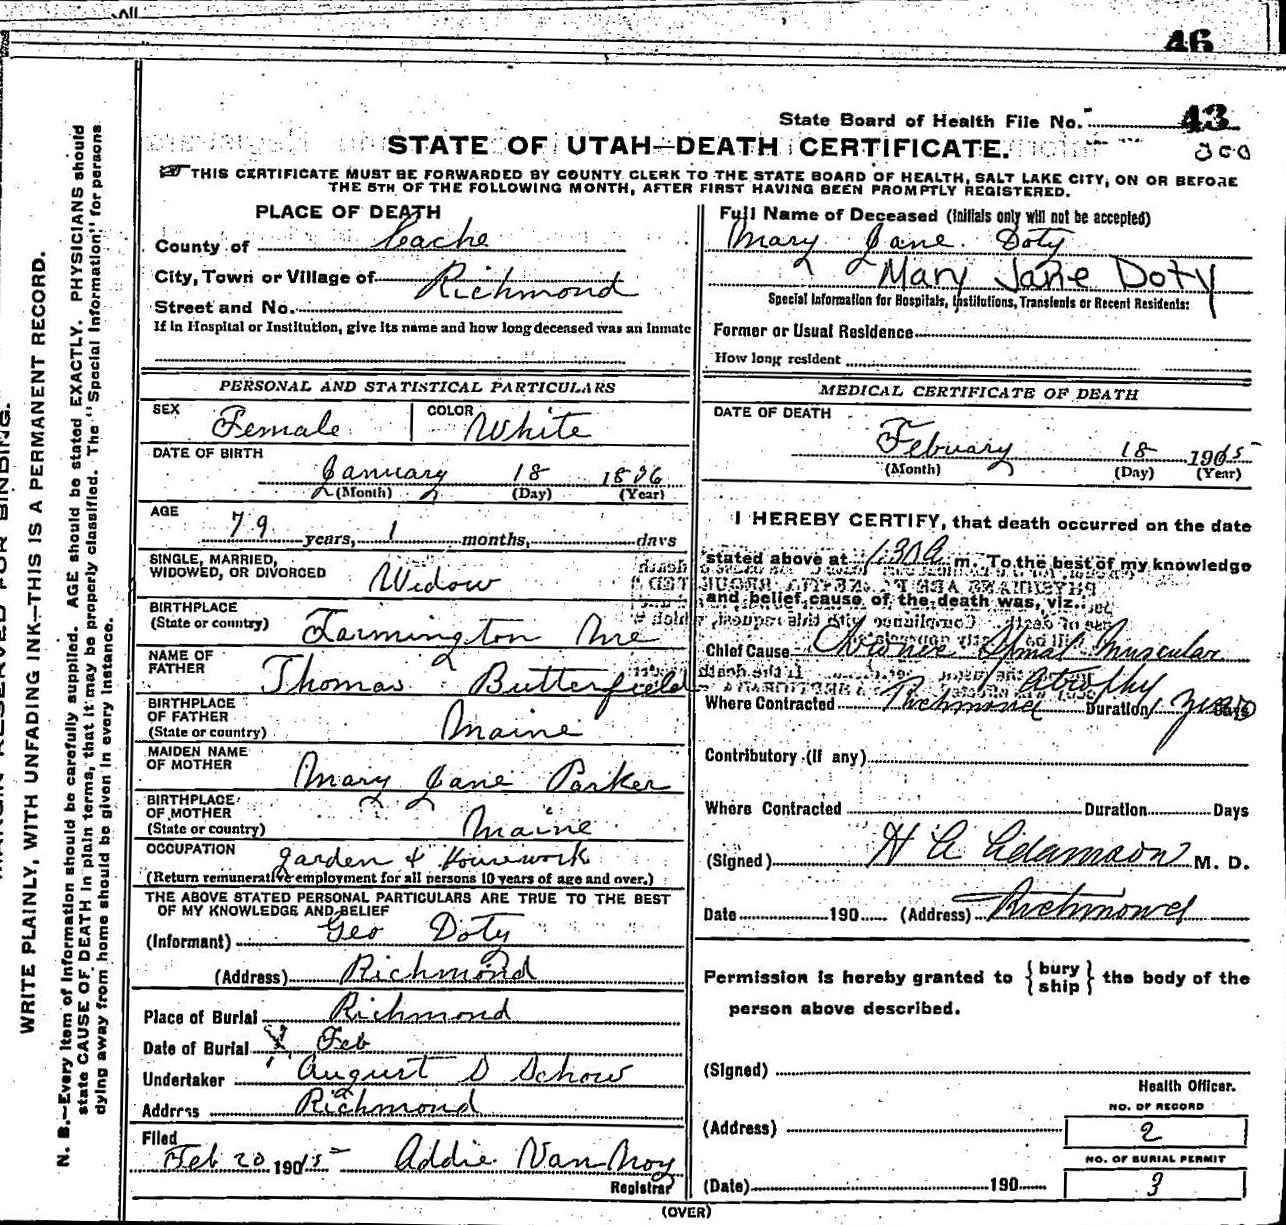 46
State Board of Health File No. 43
300
STATE OF UTAH—DEATH CERTIFICATE.
THIS CERTIFICATE MUST BE FORWARDED BY COUNTY CLERK TO THE STATE BOARD OF HEALTH, SALT LAKE CITY, ON OR BEFORE
THE 5TH OF THE FOLLOWING MONTH, AFTER FIRST HAVING BEEN PROMPTLY REGISTERED.
WRITE PLAINLY, WITH UNFADING INK—THIS IS A PERMANENT RECORD.
N. B.—Every item of information should be carefully supplied. AGE should be stated EXACTLY. PHYSICIANS should
state CAUSE OF DEATH in plain terms, that it may be properly classified. The "Special Information" for persons
dying away from home should be given in every instance.
PLACE OF DEATH
County of Cache
City, Town or Village of Richmond
Street and No.
If in Hospital or Institution, give its name and how long deceased was an inmate
PERSONAL AND STATISTICAL PARTICULARS
SEX Female COLOR White
DATE OF BIRTH
January 18 1836
(Month) (Day) (Year)
AGE
79 years, 1 months, days
SINGLE, MARRIED,
WIDOWED, OR DIVORCED Widow
BIRTHPLACE
(State or country) Farmington Me
NAME OF
FATHER Thomas Butterfield
BIRTHPLACE
OF FATHER
(State or country) Maine
MAIDEN NAME
OF MOTHER Mary Jane Parker
BIRTHPLACE
OF MOTHER
(State or country) Maine
OCCUPATION garden & Housework
(Return remunerative employment for all persons 10 years of age and over.)
THE ABOVE STATED PERSONAL PARTICULARS ARE TRUE TO THE BEST
OF MY KNOWLEDGE AND BELIEF
(Informant) Geo Doty
(Address) Richmond
Place of Burial Richmond
Date of Burial Feb
Undertaker August S Schow
Address Richmond
Filed
Feb 20 1915 Addie Van Noy
Registrar
Full Name of Deceased (Initials only will not be accepted)
Mary Jane Doty
Mary Jane Doty
Special Information for Hospitals, Institutions, Transients or Recent Residents:
Former or Usual Residence
How long resident
MEDICAL CERTIFICATE OF DEATH
DATE OF DEATH
February 18 1915
(Month) (Day) (Year)
I HEREBY CERTIFY, that death occurred on the date
stated above at 130 a m. To the best of my knowledge
and belief cause of the death was, viz.
Chief Cause Chronic Spinal Muscular
atrophy
Where Contracted Richmond Duration 1 year Days
Contributory (if any)
Where Contracted Duration Days
(Signed) H A Adamson M. D.
Date 190 (Address) Richmond
Permission is hereby granted to { bury
ship } the body of the
person above described.
(Signed)
Health Officer.
(Address)
NO. OF RECORD
2
NO. OF BURIAL PERMIT
3
(Date) 190
(OVER)